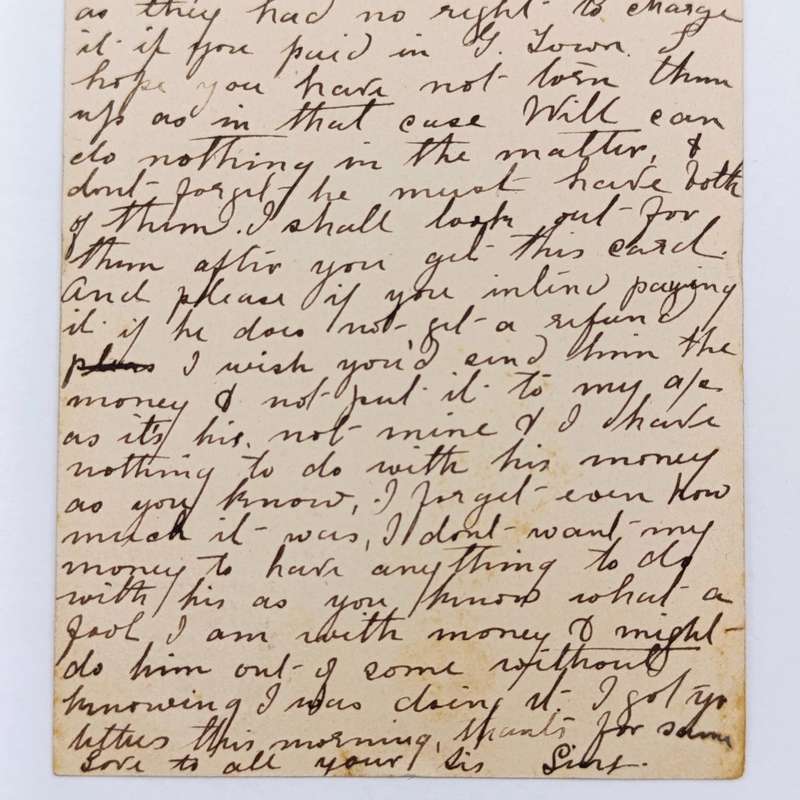 as they had no right to charge
it if you paid in G. Town. I
hope you have not torn them
up as in that case Will can
do nothing in the matter, &
dont forget he must have both
of them. I shall look out for
them after you get this card.
And please if you intend paying
it if he does not get a refund
I wish you'd send him the
money & not put it to my a/c
as it's his, not mine & I have
nothing to do with his money
as you know, I forget even how
much it was, I dont want my
money to have anything to do
with his as you know what a
fool I am with money & might
do him out of some without
knowing I was doing it. I got yr
letters this morning, thanks for same
Love to all your Sis